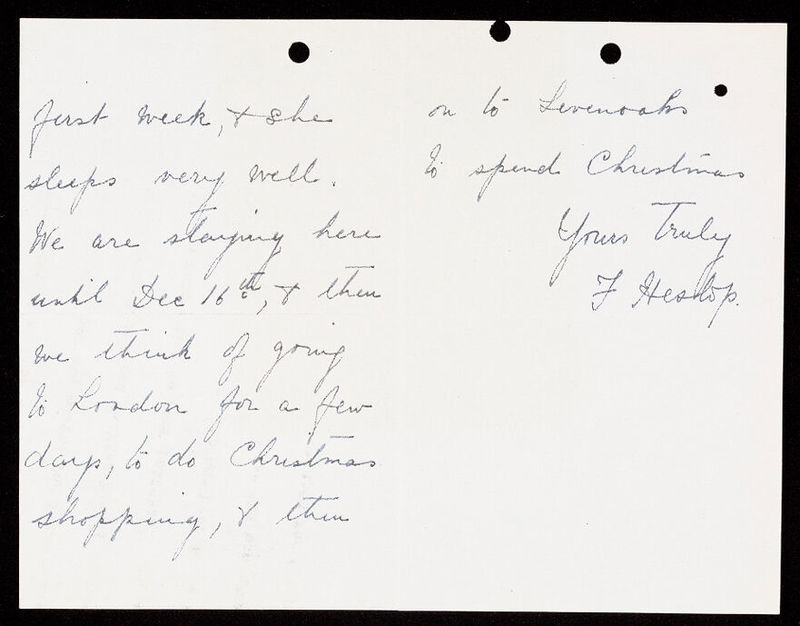 first week, & she
sleeps very well.
We are staying here
until Dec 16th, & then
we think of going
to London for a few
days, to do Christmas
shopping, & then
on to Sevenoaks
to spend Christmas
Yours Truly
F Heslop.